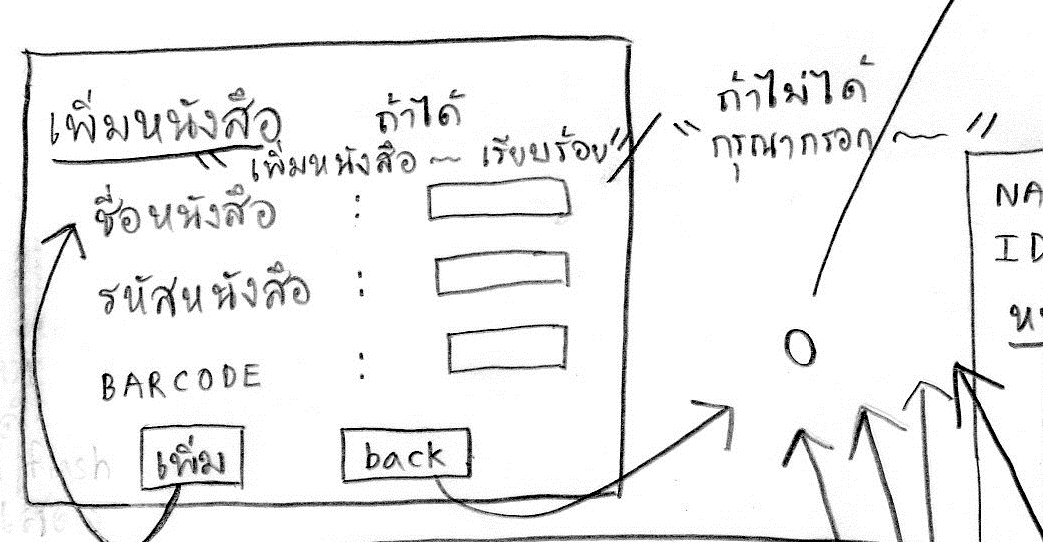 เพิ่มหนังสือ
ถ้าได้
"เพิ่มหนังสือ ~ เรียบร้อย" /
ถ้าไม่ได้
"กรุณากรอก ~"
ชื่อหนังสือ :
รหัสหนังสือ :
BARCODE :
เพิ่ม
back
O
NA
ID